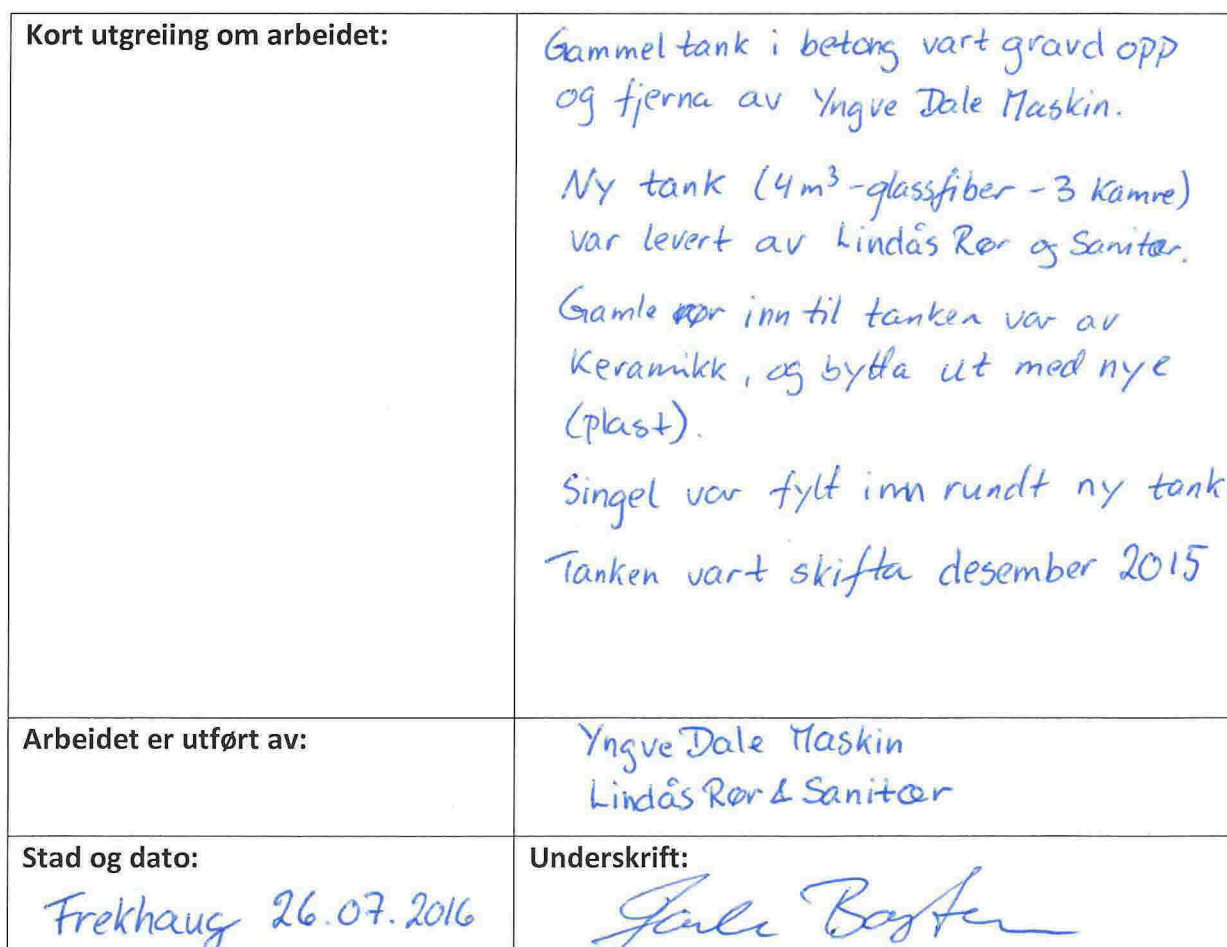 Kort utgreiing om arbeidet:
Gammel tank i betong vart gravd opp
og fjerna av Yngve Dale Maskin.
Ny tank (4m³-glassfiber - 3 kamre)
var levert av Lindås Rør og Sanitær.
Gamle rør inn til tanken var av
Keramikk, og bytta ut med nye
(plast).
Singel var fylt inn rundt ny tank
Tanken vart skifta desember 2015
Arbeidet er utført av:
Yngve Dale Maskin
Lindås Rør & Sanitær
Stad og dato:
Frekhaug 26.07.2016
Underskrift: